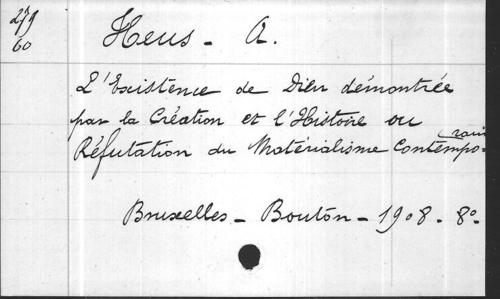 279
60
Heus - A.
L'Existence de Dieu démontrée
par la Création et l'Histoire ou
Réfutation du Matérialisme Contempo-
rain
Bruxelles - Bouton - 1908. 8º.